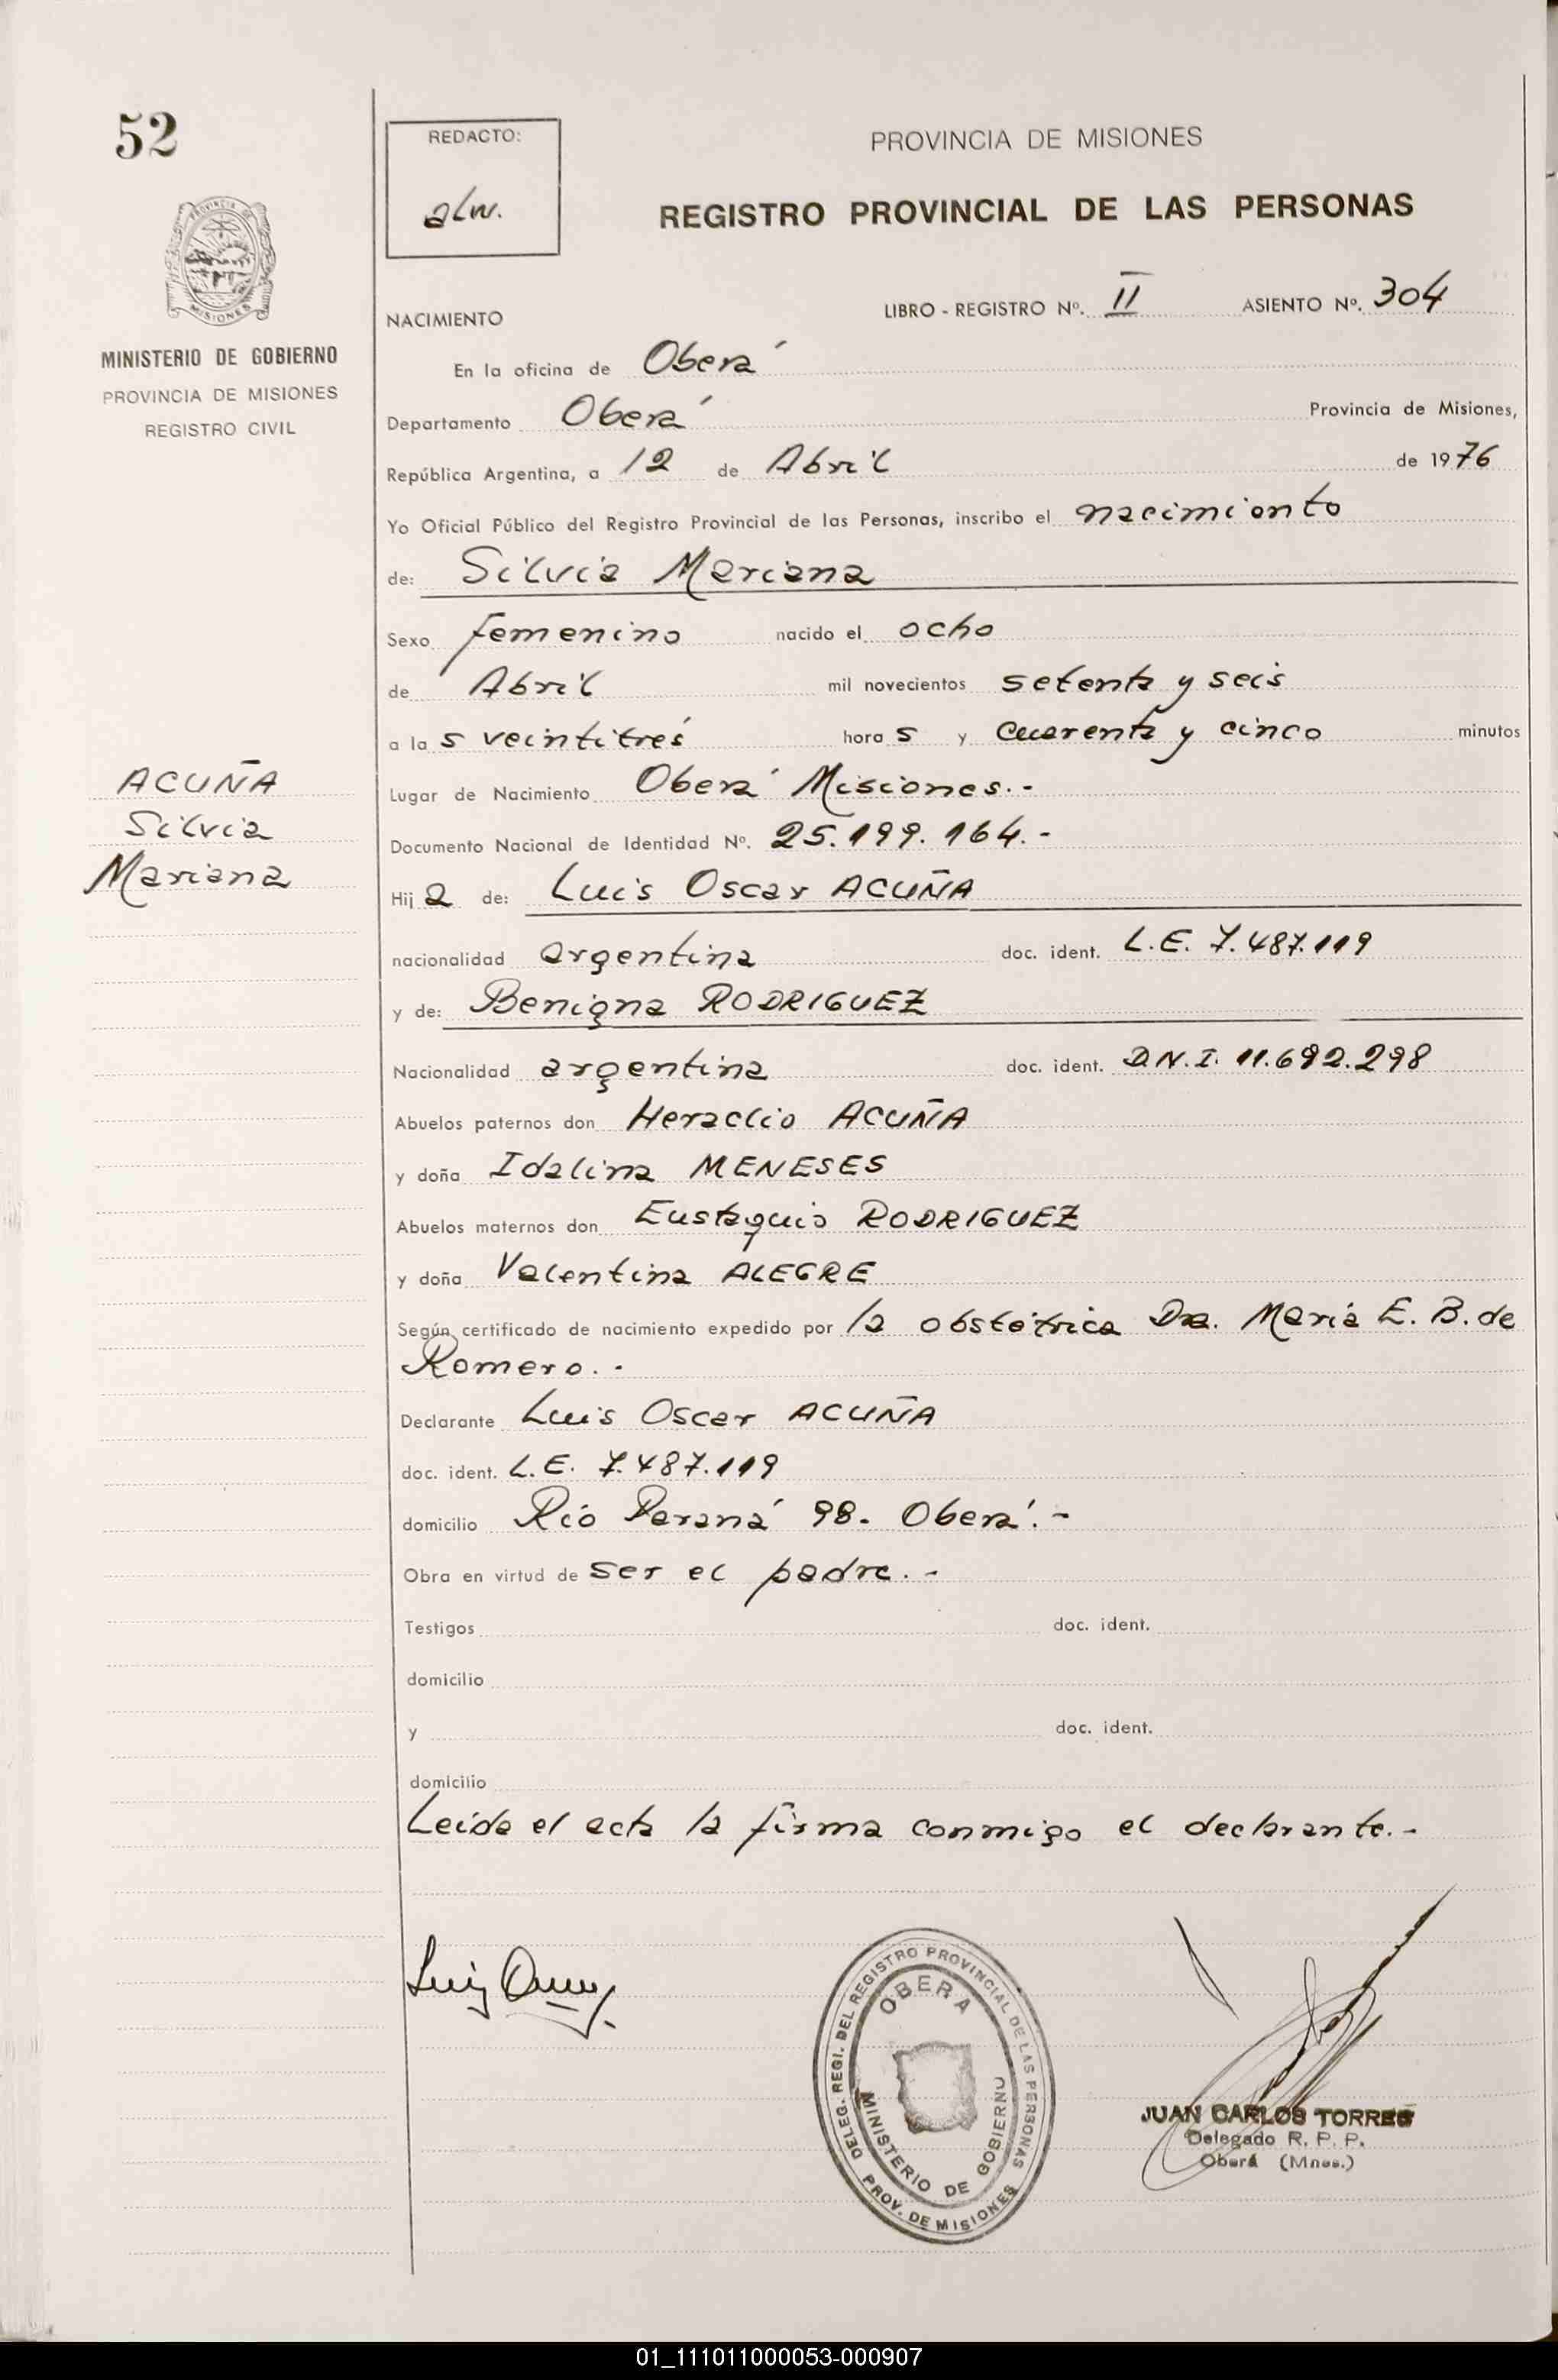 52
REDACTO:
alw.
PROVINCIA DE MISIONES
REGISTRO PROVINCIAL DE LAS PERSONAS
PROVINCIA DE
MISIONES
MINISTERIO DE GOBIERNO
PROVINCIA DE MISIONES
REGISTRO CIVIL
NACIMIENTO LIBRO - REGISTRO Nº. II ASIENTO Nº. 304
En la oficina de Oberá
Departamento Oberá Provincia de Misiones,
República Argentina, a 12 de Abril de 1976
Yo Oficial Público del Registro Provincial de las Personas, inscribo el nacimiento
de: Silvia Mariana
Sexo femenino nacido el ocho
de Abril mil novecientos setenta y seis
a las veintitrés horas y cuarenta y cinco minutos
Lugar de Nacimiento Oberá Misiones.-
Documento Nacional de Identidad Nº. 25.199.164.-
Hija de: Luis Oscar ACUÑA
nacionalidad argentina doc. ident. L.E. 7.487.119
y de: Benigna RODRIGUEZ
Nacionalidad argentina doc. ident. D.N.I. 11.692.298
Abuelos paternos don Heraclio ACUÑA
y doña Idalina MENESES
Abuelos maternos don Eustaquio RODRIGUEZ
y doña Valentina ALEGRE
Según certificado de nacimiento expedido por la obstétrica Dra. María E. B. de
Romero.-
Declarante Luis Oscar ACUÑA
doc. ident. L.E. 7.487.119
domicilio Río Paraná 98. Oberá.-
Obra en virtud de ser el padre.-
Testigos doc. ident.
domicilio
y doc. ident.
domicilio
Leída el acta la firma conmigo el declarante.-
ACUÑA
Silvia
Mariana
DELEG. REGI. DEL REGISTRO PROVINCIAL DE LAS PERSONAS
OBERA
MINISTERIO DE GOBIERNO
PROV. DE MISIONES
JUAN CARLOS TORRES
Delegado R. P. P.
Oberá (Mnes.)
01_111011000053-000907